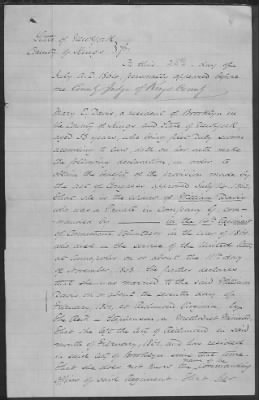 State of New York
County of Kings } SS.
On this 28th day of
July A.D. 1864, personally appeared before
me County Judge of Kings County
Mary E. Davis a resident of Brooklyn in
the County of Kings and State of New York
aged 38 years, who being first duly sworn
according to law doth on her oath make
the following declaration, in order to
obtain the benefit of the provision made by
the act of Congress approved July 14, 1862,
That she is the widow of William Davis
who was a Private in Company
manded by in the Regiment
of Connecticut Volunteers in the war of 1861,
who died in the service of the United States
on or about the 11th day
of November, 1863. She further declares
that she was married to the said William
Davis on or about the seventh day of
February, at Richmond by
the Rev. Stephenson a Methodist
That she left the of Richmond in said
month of February, and has resided
in said City of Brooklyn since that time.
That she does not know the name of the Commanding
Officer of said Regiment. That her